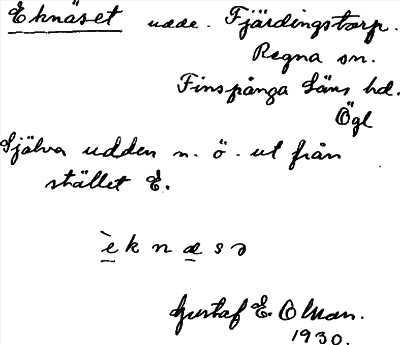 Eknäset udde. Fjärdingstorp.
Regna sn.
Finspånga Läns hd.
Ögl
Själva udden n. ö. ut från
stället E.
è k n æ s ə
Gustaf E. Olman.
1930.